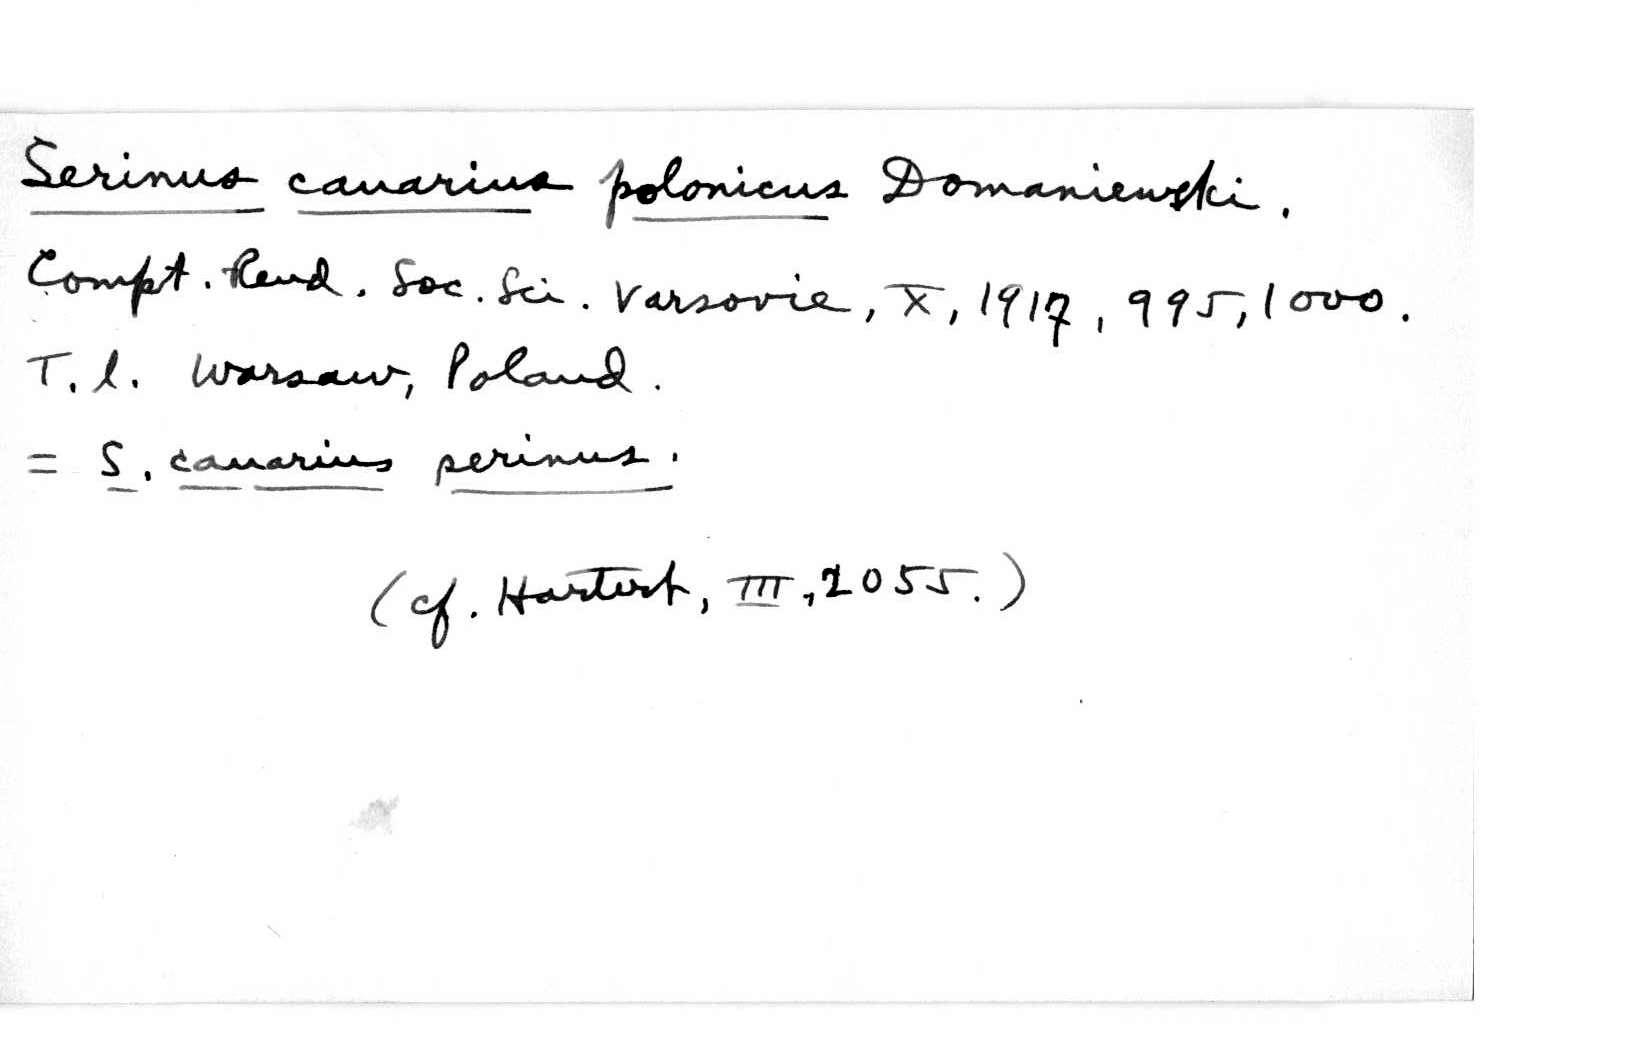 Serinus canarius polonicus Domaniewski.
Compt. Rend. Soc. Sci. Varsovie, X, 1917, 995, 1000.
T. l. Warsaw, Poland.
= S. canarius serinus.
(cf. Hartert, III, 2055.)